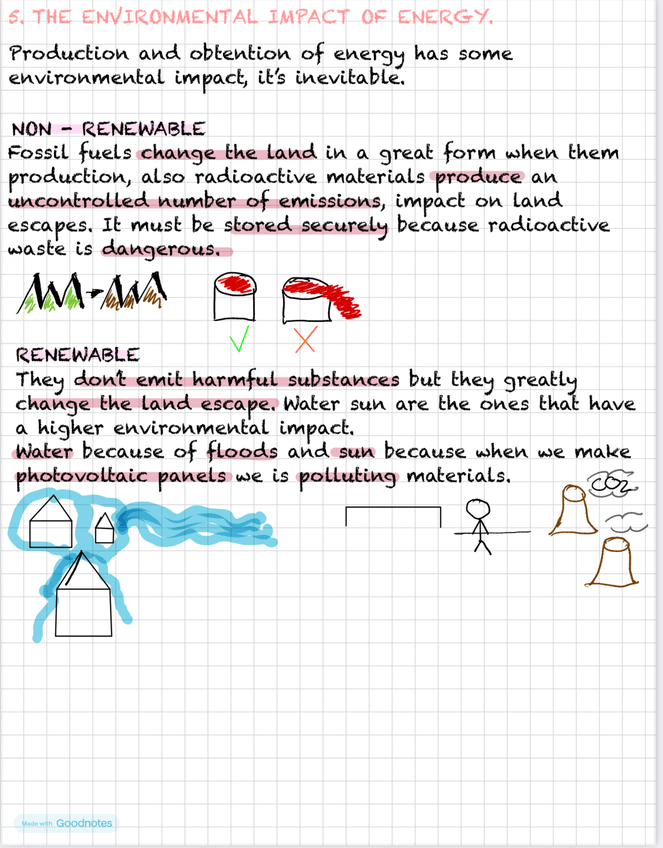 5. THE ENVIRONMENTAL IMPACT OF ENERGY.
Production and obtention of energy has some
environmental impact, it's inevitable.
NON - RENEWABLE
Fossil fuels change the land in a great form when them
production, also radioactive materials produce an
uncontrolled number of emissions, impact on land
escapes. It must be stored securely because radioactive
waste is dangerous.
RENEWABLE
They don't emit harmful substances but they greatly
change the land escape. Water sun are the ones that have
a higher environmental impact.
Water because of floods and sun because when we make
photovoltaic panels we is polluting materials.
CO2
Made with Goodnotes